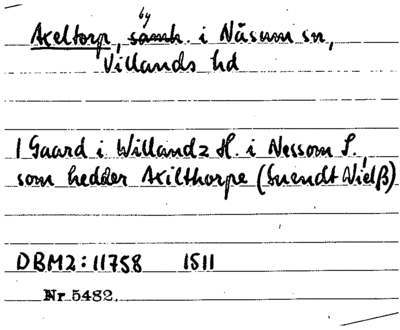 by
Axeltorp, samh. i Näsum sn,
Villands hd
1 Gaard i Willandz H. i Nessom S.,
som hedder Axilthorpe (Suendt Nielß)
DBM2:11758 1511
Nr 5482.